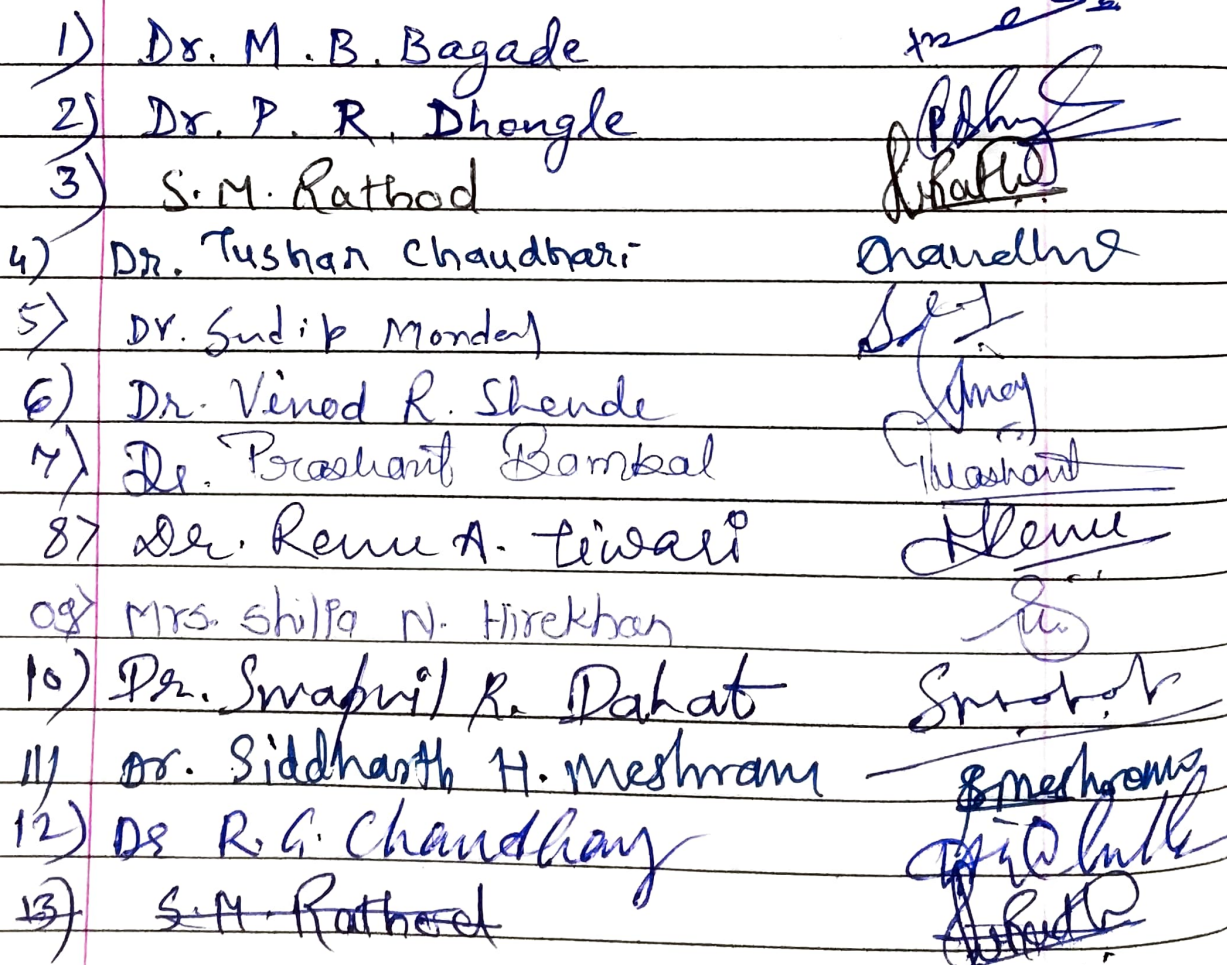 1) Dr. M. B. Bagade
2) Dr. P. R. Dhongle
3) S. M. Rathod
4) Dr. Tushar Chaudhari Chaudhri
5) Dr. Sudip Mondal
6) Dr. Vinod R. Shende
7) Dr. Prashant Bambal Prashant
8) Dr. Renu A. Tiwari Renu
09) Mrs. Shilpa N. Hirekhan
10) Dr. Swapnil R. Dahat
11) Dr. Siddharth H. Meshram Smeshram
12) Dr R. G. Chaudhary
13) S. M. Rathod